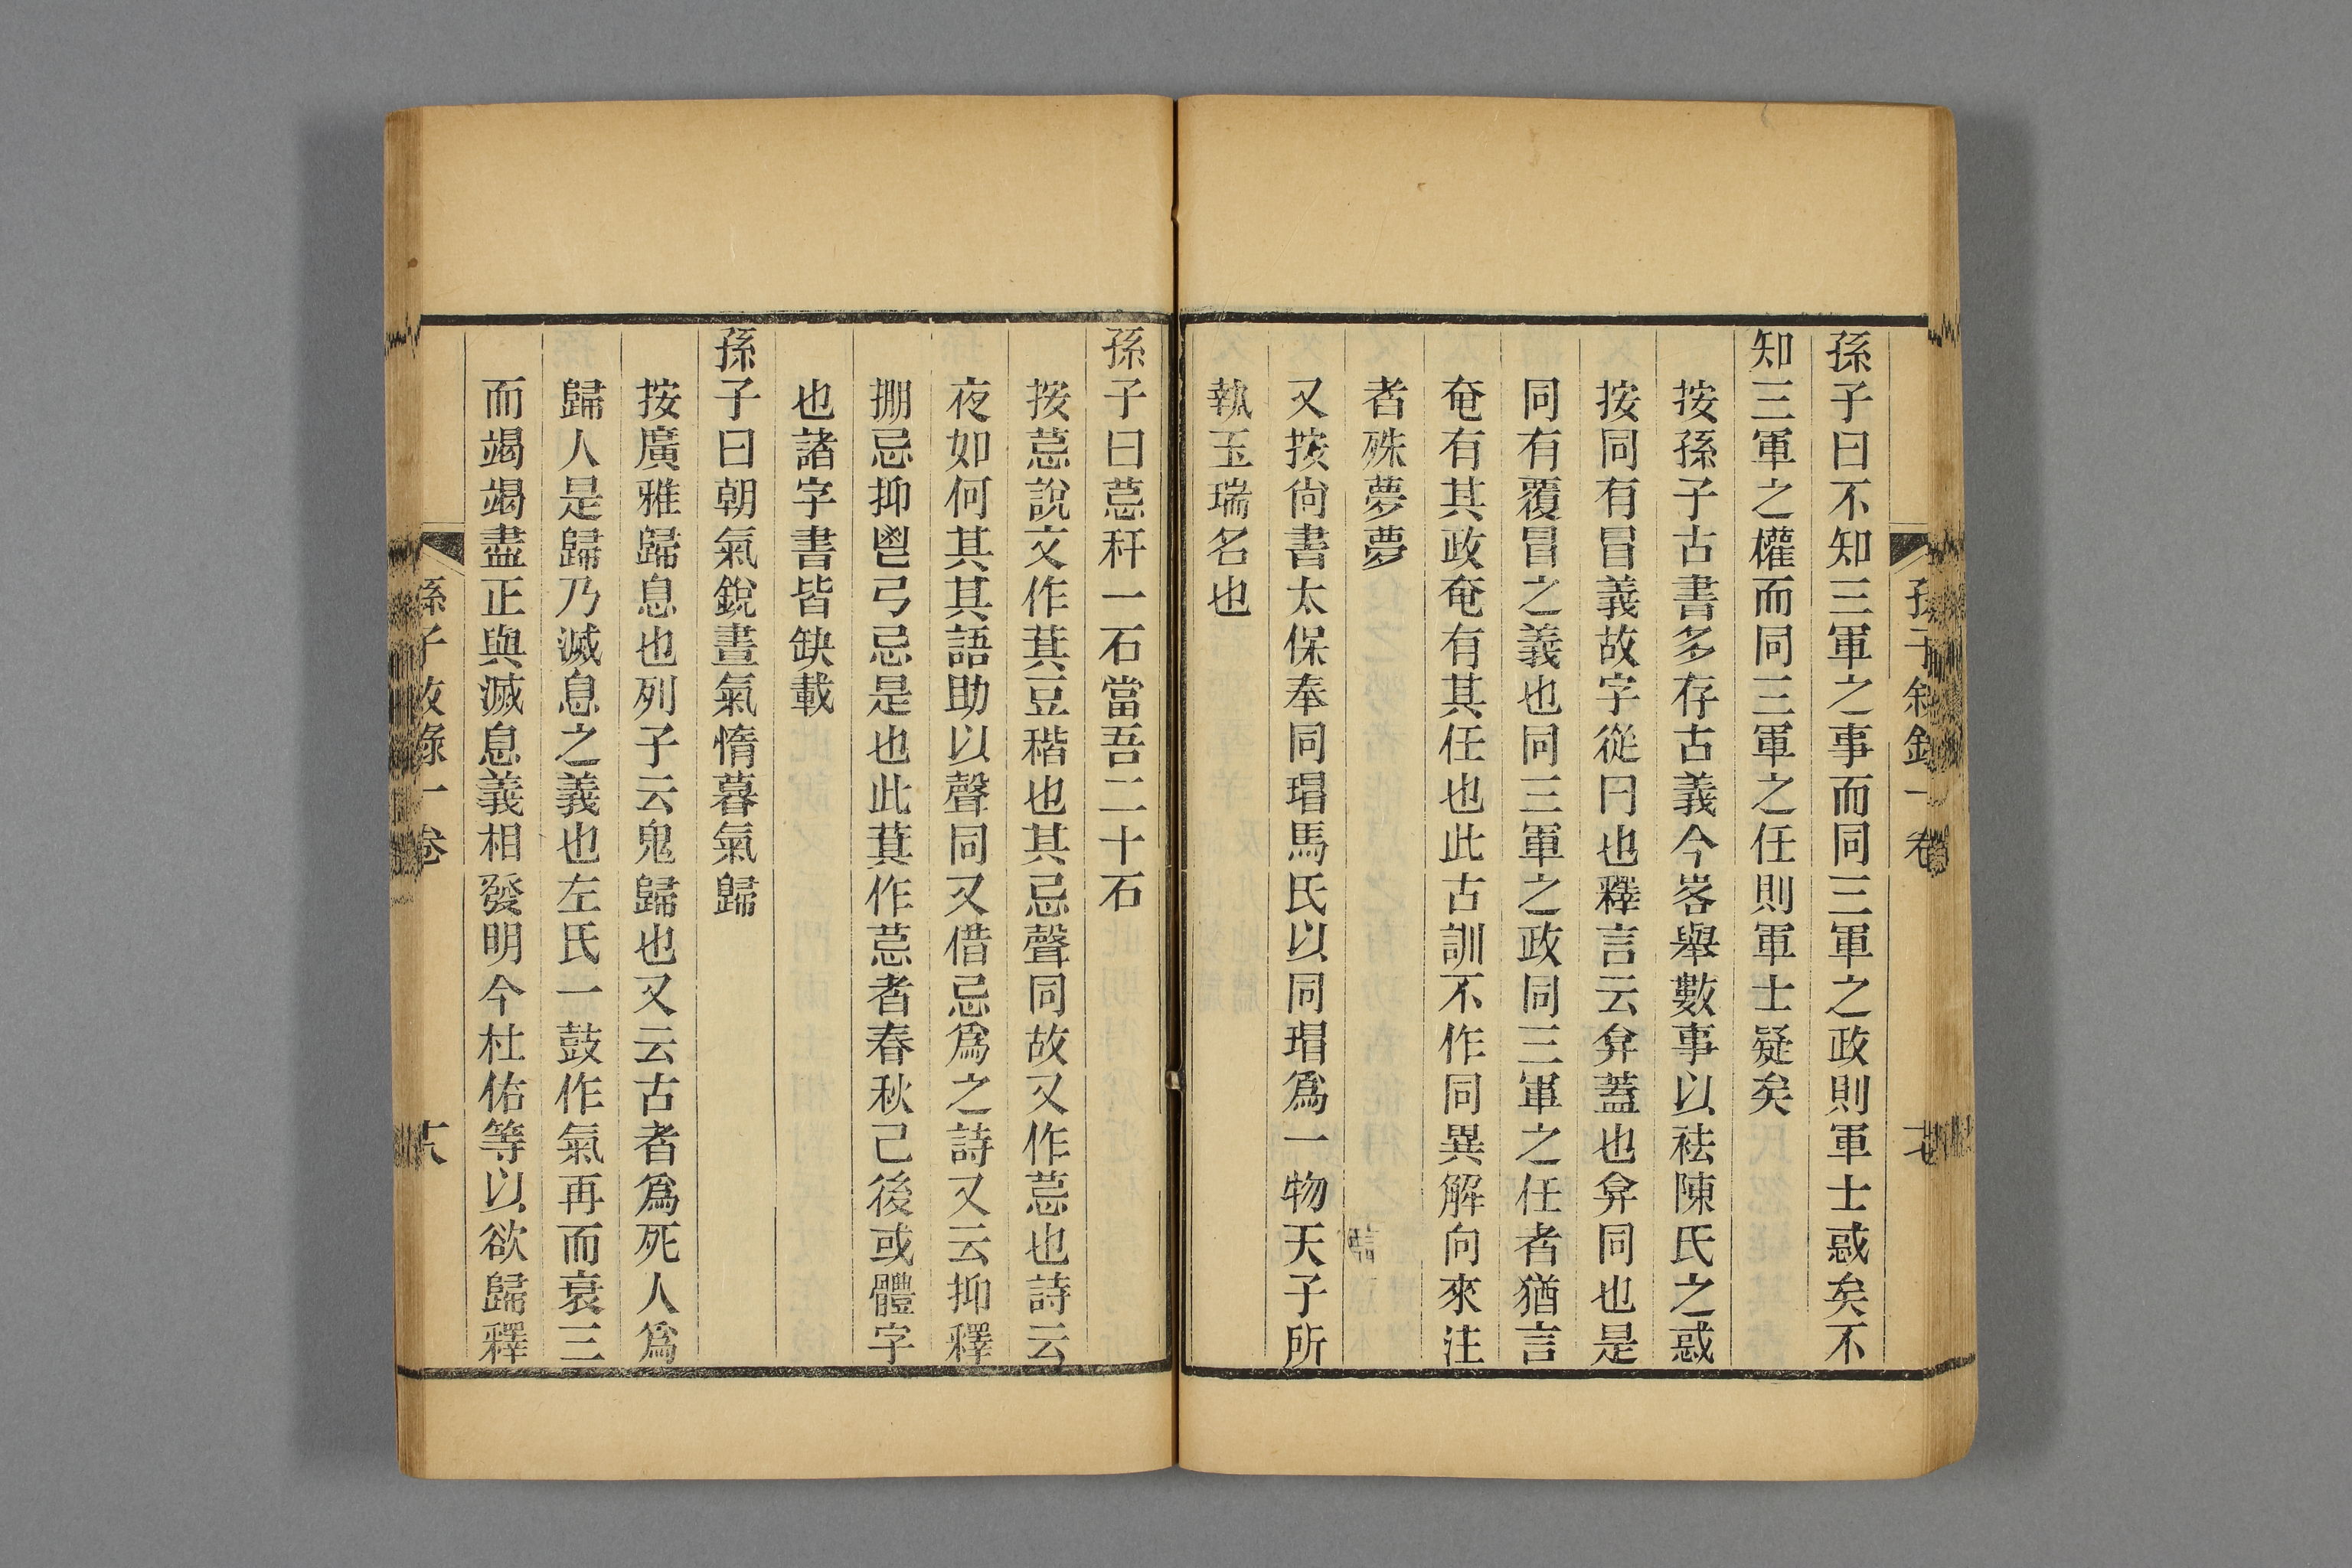 孫子曰不知三軍之事而同三軍之政則軍士惑矣不
知三軍之權而同三軍之任則軍士疑矣
按孫子古書多存古義今畧舉數事以袪陳氏之惑
按同有冒義故字從冃也釋言云弇蓋也弇同也是
同有覆冒之義也同三軍之政同三軍之任者猶言
奄有其政奄有其任也此古訓不作同異解向來注
者殊夢夢
又按尙書太保奉同瑁馬氏以同瑁爲一物天子所
執玉瑞名也
孫子曰萁秆一石當吾二十石
按萁說文作萁豆稭也其忌聲同故又作䓽也詩云
夜如何其其語助以聲同又借忌爲之詩又云抑釋
掤忌抑鬯弓忌是也此萁作䓽者春秋已後或體字
也諸字書皆缺載
孫子曰朝氣銳晝氣惰暮氣歸
按廣雅歸息也列子云鬼歸也又云古者爲死人爲
歸人是歸乃滅息之義也左氏一鼓作氣再而衰三
而竭竭盡正與滅息義相發明今杜佑等以欲歸釋
孫子敘錄一卷
六